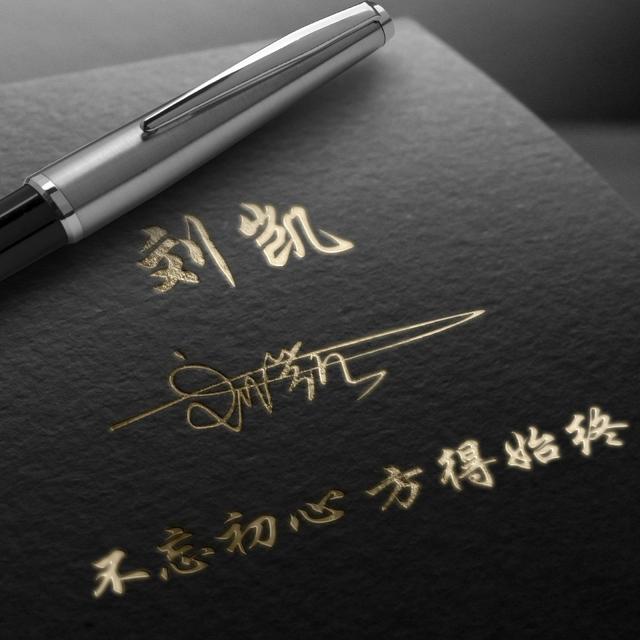 刘凯
刘凯
不忘初心 方得始终